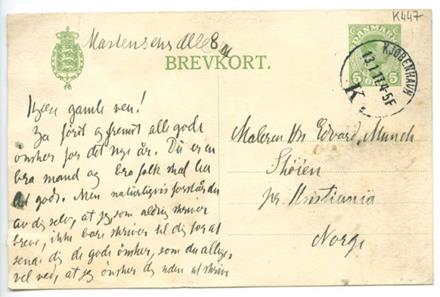 K447
Martensens Allé 8 IV
BREVKORT.
DANMARK
5 5
KJØBENHAVN
13.1.17. 4-5F
K.
Kjære gamle ven!
Ja først og fremst alle gode
ønsker for det nye år. Du er en
bra mand og bra folk skal ha
det godt. Men naturligvis forstår du
av dig selv, at jeg som aldrig skriver
breve, ikke bare skriver til dig for at
sende dig de gode ønsker, som du alligevel
vel ved, at jeg ønsker dig uden at skrive
Maleren Hr Edvard Munch
Skøien
pr. Kristiania
Norge